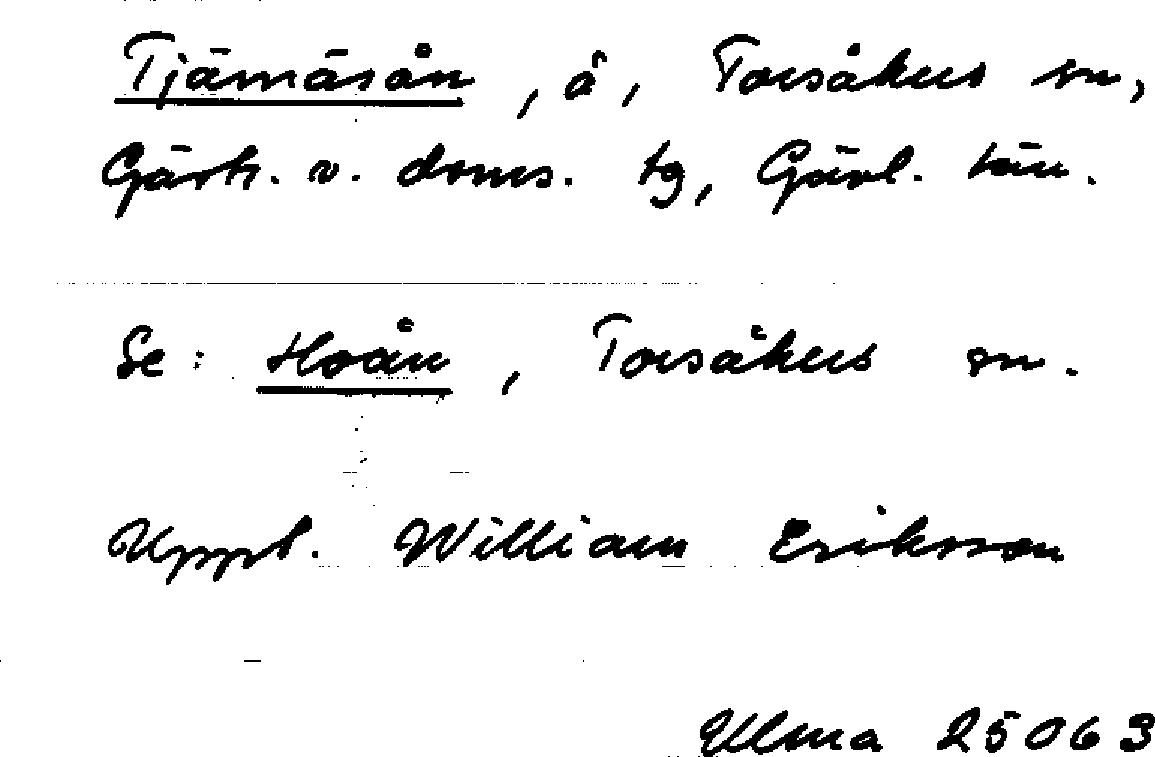 Tjämåsån, å, Torsåkers sn,
Gästr. v. doms. tg, Gävl. län.
Se: Hoån, Torsåkers sn.
Uppt. William Eriksson
Ulma 25063